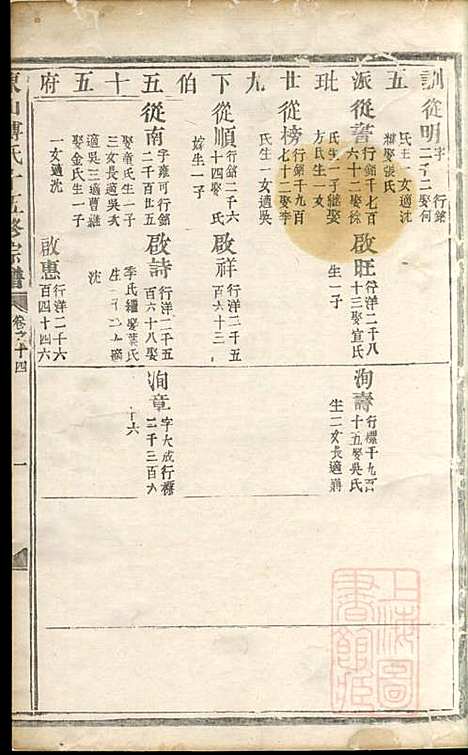 訓五派世九下伯五十五府
從明 字 行鎔
二千二娶何
氏王 女適沈
繼娶張氏
從書 行鎔千七百
六十二娶徐
氏生一子繼娶
方氏生一女
啟旺 行洋二千八
十三娶宣氏
生一子
洵壽 行標千九百
十五娶吳氏
生二女長適蔣
從榜 行鎔千九百
七十二娶李
氏生一女適吳
從順 行鎔二千六
十四娶 氏
生一子
啟祥 行洋二千五
百六十三
從南 字雍可行鎔
二千百廿五
娶童氏生一子
三女長適吳次
適吳三適曹繼
娶金氏生一子
一女適沈
啟詩 行洋二千五
百六十八娶
李氏繼娶葉氏
生
沈
洵章 字大成行標
二千三百六
十六
啟惠 行洋二千六
百四十四
東山傅氏十五修宗譜
卷之十四
一
上海圖書館藏